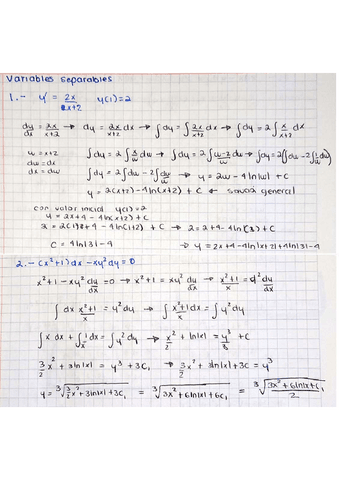 Variables separables
1.- y' = 2x/x+2   y(1)=2
dy/dx = 2x/x+2 → dy = 2x/x+2 dx → ∫dy = ∫2x/x+2 dx → ∫dy = 2∫x/x+2 dx
u = x+2   ∫dy = 2∫x/w dw → ∫dy = 2∫w-2/w dw → ∫dy = 2(∫dw - 2∫1/w dw)
dw = dx
dx = dw   ∫dy = 2∫dw - 2∫dw → y = 2w - 4ln|w| + C
y = 2(x+2) - 4ln(x+2) + C ← general
con valor inicial y(1)=2
y = 2x+4 - 4ln|x+2| + C
2 = 2(1)+4 - 4ln(1+2) + C → 2 = 2+4 - 4ln(3) + C
C = 4ln|3| - 4 → y = 2x+4 - 4ln|x+2| + 4ln|3| - 4
2.- (x²+1)dx - xy²dy = 0
x²+1 - xy² dy/dx = 0 → x²+1 = xy² dy/dx → x²+1/x = y² dy/dx
∫dx x²+1/x = y²dy → ∫x²+1/x dx = ∫y²dy
∫x dx + ∫1/x dx = ∫y²dy → x²/2 + ln|x| = y³/3 + C
3/2 x² + 3ln|x| = y³ + 3C₁ → 3/2 x² + 3ln|x| + 3C = y³
y = ³√(3/2 x² + 3ln|x| + 3C₁) = ³√(3x² + 6ln|x| + 6C₁) = ³√(3x² + 6ln|x| + C₁/2)